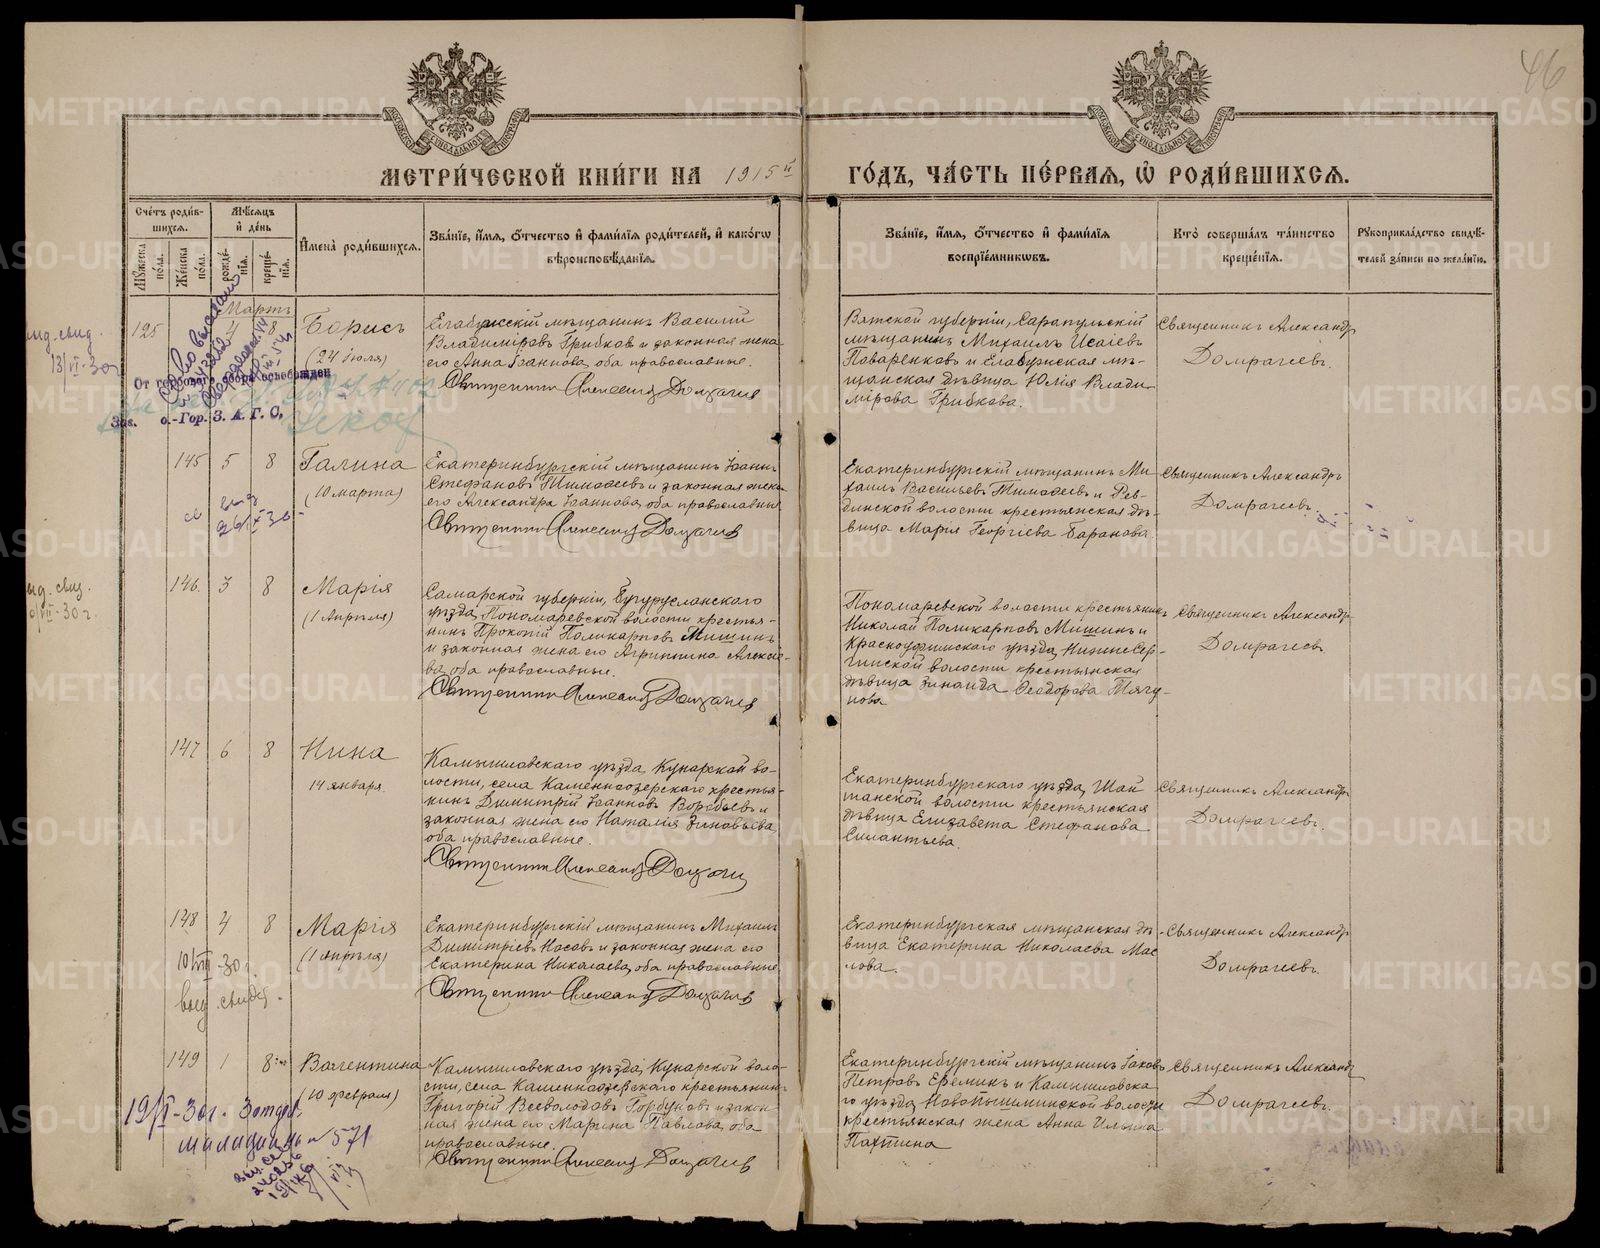 46
МЕТРИ́ЧЕСКОЙ КНИ́ГИ НА 1915 й ГО́ДЪ, ЧА́СТЬ ПЕ́РВАѦ, Ѽ РОДИ́ВШИХСѦ.
Счéтъ роди́вшихсѧ.
Мѣ́сѧцъ и҆ де́нь
И҆мена̀ роди́вшихсѧ.
Зва́нїе, и҆́мѧ, ѻ҆́тчество и҆ фами́лїѧ роди́телей, и҆ како́гѡ вѣроисповѣ́данїѧ.
Зва́нїе, и҆́мѧ, ѻ҆́тчество и҆ фами́лїѧ воспрїе́мникѡвъ.
Кто̀ соверша́лъ та́инство креще́нїѧ.
Рꙋкоприкла́дство свидѣ́телей за́писи по жела́нїю.
Мꙋ́жеска по́ла.
Же́нска по́ла.
рожде́нїѧ.
креще́нїѧ.
Мартъ
125 4 8 Борисъ
(24 Іюля)
Елабужскій мѣщанинъ Василій
Владиміровъ Грибковъ и законная жена
его Анна Іоаннова, оба православные.
Священникъ Александръ Домрачевъ
Вятской губерніи, Сарапульскій
мѣщанинъ Михаилъ Исаіевъ
Поваренковъ и Елабужская мѣ-
щанская дѣвица Юлія Влади-
мірова Грибкова.
Священникъ Александръ
Домрачевъ.
13/VI-30г
От гербового сбора освобожден
Зав. о.-Гор. З. А. Г. С.
145 5 8 Галина
(10 марта)
Екатеринбургскій мѣщанинъ Іоаннъ
Стефановъ Тимофеевъ и законная жена
его Александра Іоаннова, оба православные
Священникъ Александръ Домрачевъ
Екатеринбургскій мѣщанинъ Ми-
хаилъ Васильевъ Тимофеевъ и Рев-
динской волости крестьянская дѣ-
вица Марія Георгіева Баранова.
Священникъ Александръ
Домрачевъ.
146. 3 8 Марія
(1 Апрѣля)
Самарской губерніи, Бугурусланскаго
уѣзда, Пономаревской волости крестья-
нинъ Прокопій Поликарповъ Мишинъ
и законная жена его Агриппина Алексіе-
ва, оба православные.
Священникъ Александръ Домрачевъ
Пономаревской волости крестьянинъ
Николай Поликарповъ Мишинъ и
Красноуфимскаго уѣзда, Нижнесер-
гинской волости крестьянская
дѣвица Зинаида Ѳеодорова Тягу-
нова
Священникъ Александръ
Домрачевъ
147 6 8 Нина
14 января.
Камышловскаго уѣзда, Кунарской во-
лости, села Каменноозерскаго крестья-
нинъ Димитрій Іоанновъ Воробьевъ и
законная жена его Наталія Зиновьева,
оба православные.
Священникъ Александръ Домрачевъ
Екатеринбургскаго уѣзда, Шай-
танской волости крестьянская
дѣвица Елизавета Стефанова
Силантьева.
Священникъ Александръ
Домрачевъ.
148 4 8 Марія
(1 апрѣля)
Екатеринбургскій мѣщанинъ Михаилъ
Димитріевъ Носовъ и законная жена его
Екатерина Николаева, оба православные.
Священникъ Александръ Домрачевъ
Екатеринбургская мѣщанская дѣ-
вица Екатерина Николаева Мас-
лова.
Священникъ Александръ
Домрачевъ.
10/VII-30г.
выд. свидет.
149 1 8 Валентина
(10 февраля)
Камышловскаго уѣзда, Кунарской воло-
сти, села Каменноозерскаго крестьянинъ
Григорій Всеволодовъ Горбуновъ и закон-
ная жена его Марина Павлова, оба
православные.
Священникъ Александръ Домрачевъ
Екатеринбургскій мѣщанинъ Іаковъ
Петровъ Ереминъ и Камышловска-
го уѣзда, Новопышминской волости
крестьянская жена Анна Ильина
Пахтина
Священникъ Александръ
Домрачевъ.
METRIKI.GASO-URAL.RU